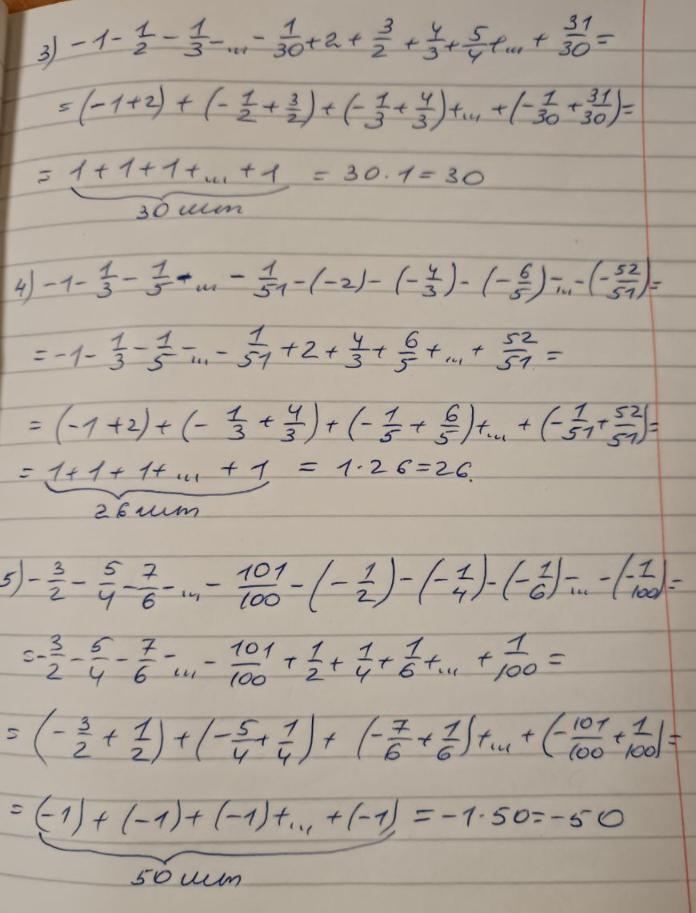 3) -1 - 1/2 - 1/3 - ... - 1/30 + 2 + 3/2 + 4/3 + 5/4 + ... + 31/30 =
= (-1+2) + (-1/2 + 3/2) + (-1/3 + 4/3) + ... + (-1/30 + 31/30) =
= 1 + 1 + 1 + ... + 1 = 30 · 1 = 30
30 шт
4) -1 - 1/3 - 1/5 - ... - 1/51 - (-2) - (-4/3) - (-6/5) - ... - (-52/51) =
= -1 - 1/3 - 1/5 - ... - 1/51 + 2 + 4/3 + 6/5 + ... + 52/51 =
= (-1+2) + (-1/3 + 4/3) + (-1/5 + 6/5) + ... + (-1/51 + 52/51) =
= 1 + 1 + 1 + ... + 1 = 1 · 26 = 26.
26 шт
5) -3/2 - 5/4 - 7/6 - ... - 101/100 - (-1/2) - (-1/4) - (-1/6) - ... - (-1/100) =
= -3/2 - 5/4 - 7/6 - ... - 101/100 + 1/2 + 1/4 + 1/6 + ... + 1/100 =
= (-3/2 + 1/2) + (-5/4 + 1/4) + (-7/6 + 1/6) + ... + (-101/100 + 1/100) =
= (-1) + (-1) + (-1) + ... + (-1) = -1 · 50 = -50
50 шт